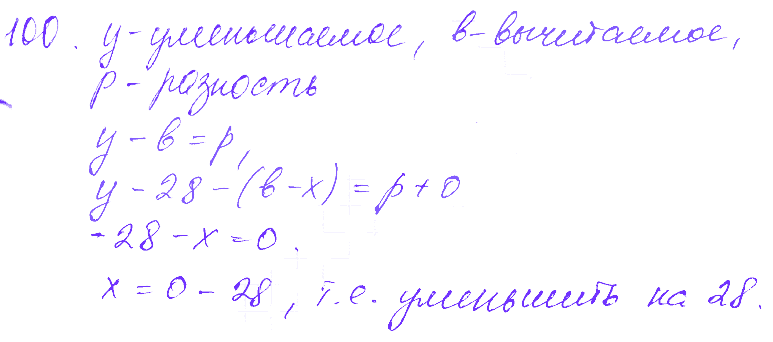 100. у-уменьшаемое, в-вычитаемое,
р - разность
у - в = р,
у - 28 - (в - х) = р + 0
- 28 - х = 0.
х = 0 - 28, т.е. уменьшить на 28.